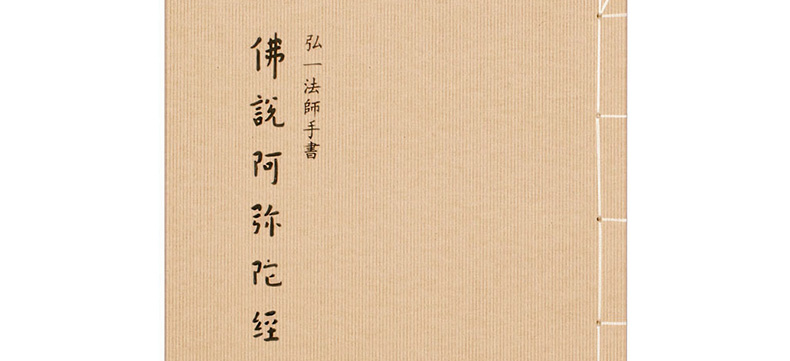 弘一法師手書
佛說阿弥陀經